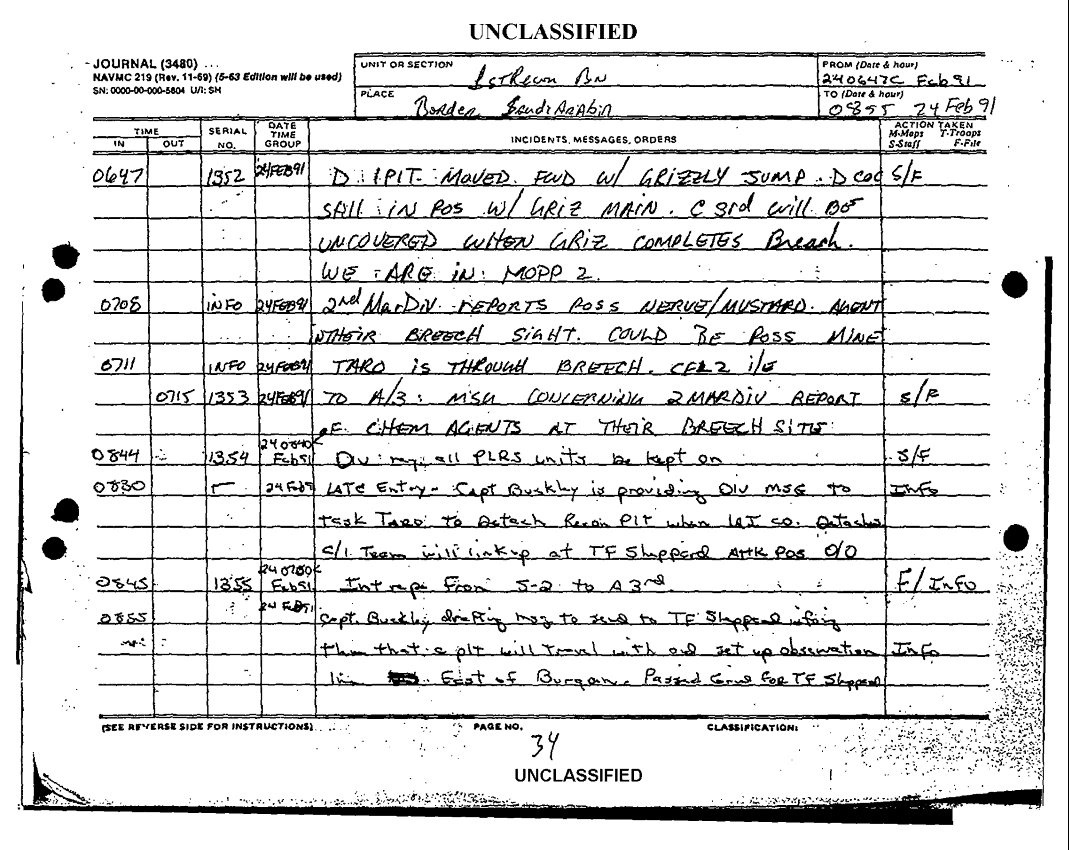 UNCLASSIFIED
JOURNAL (3480)
NAVMC 219 (Rev. 11-69) (5-63 Edition will be used)
SN: 0000-00-000-5804 U/I: SH
UNIT OR SECTION
1st Recon Bn
PLACE
Border Saudi Arabia
FROM (Date & hour)
240647C Feb 91
TO (Date & hour)
0855 24 Feb 91
TIME
IN OUT
SERIAL NO.
DATE TIME GROUP
INCIDENTS, MESSAGES, ORDERS
ACTION TAKEN
M-Maps T-Troops
S-Staff F-File
0647 1352 24FEB91 D 1PLT MOVED FWD W/ GRIZZLY JUMP. D COC S/F
STILL IN POS W/ GRIZ MAIN. C 3rd will BE
UNCOVERED WHEN GRIZ COMPLETES Breach.
WE ARE IN MOPP 2.
0708 INFO 24FEB91 2nd MarDiv REPORTS POSS NERVE/MUSTARD AGENT
INTHEIR BREECH SIGHT. COULD BE POSS MINE
0711 INFO 24FEB91 TARO is THROUGH BREECH. CFL2 i/e
0715 1353 24FEB91 TO A/3: MSG CONCERNING 2MARDIV REPORT S/F
OF CHEM AGENTS AT THEIR BREECH SITE
0844 1354 240840C Feb 91 Div req. all PLRS units be kept on S/F
0830 24 Feb 9 LATE Entry- Capt Buckley is providing DIV MSG to Info
task TARO to Detach Recon Plt when LAI co. Detaches
S/1 Team will linkup at TF Sheppard Attk Pos O/O
0845 1355 240750C Feb 91 Intrep from S-2 to A 3rd F/Info
0855 24 Feb 91 Capt. Buckley drafting msg to send to TF Sheppard
them that a plt will travel with and set up observation Info
East of Burqan. Passed For TF Sheppard
(SEE REVERSE SIDE FOR INSTRUCTIONS)
PAGE NO.
34
CLASSIFICATION:
UNCLASSIFIED